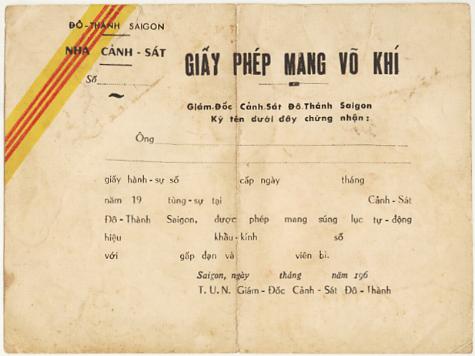 ĐÔ-THÀNH SAIGON
NHA CẢNH-SÁT
Số
GIẤY PHÉP MANG VÕ KHÍ
Giám-Đốc Cảnh-Sát Đô-Thành Saigon
Ký tên dưới đây chứng nhận :
Ông
giấy hành-sự số cấp ngày tháng
năm 19 tùng-sự tại Cảnh-Sát
Đô-Thành Saigon, được phép mang súng lục tự-động
hiệu khẩu-kính số
với gắp đạn và viên bi.
Saigon, ngày tháng năm 196
T.U.N. Giám-Đốc Cảnh-Sát Đô-Thành